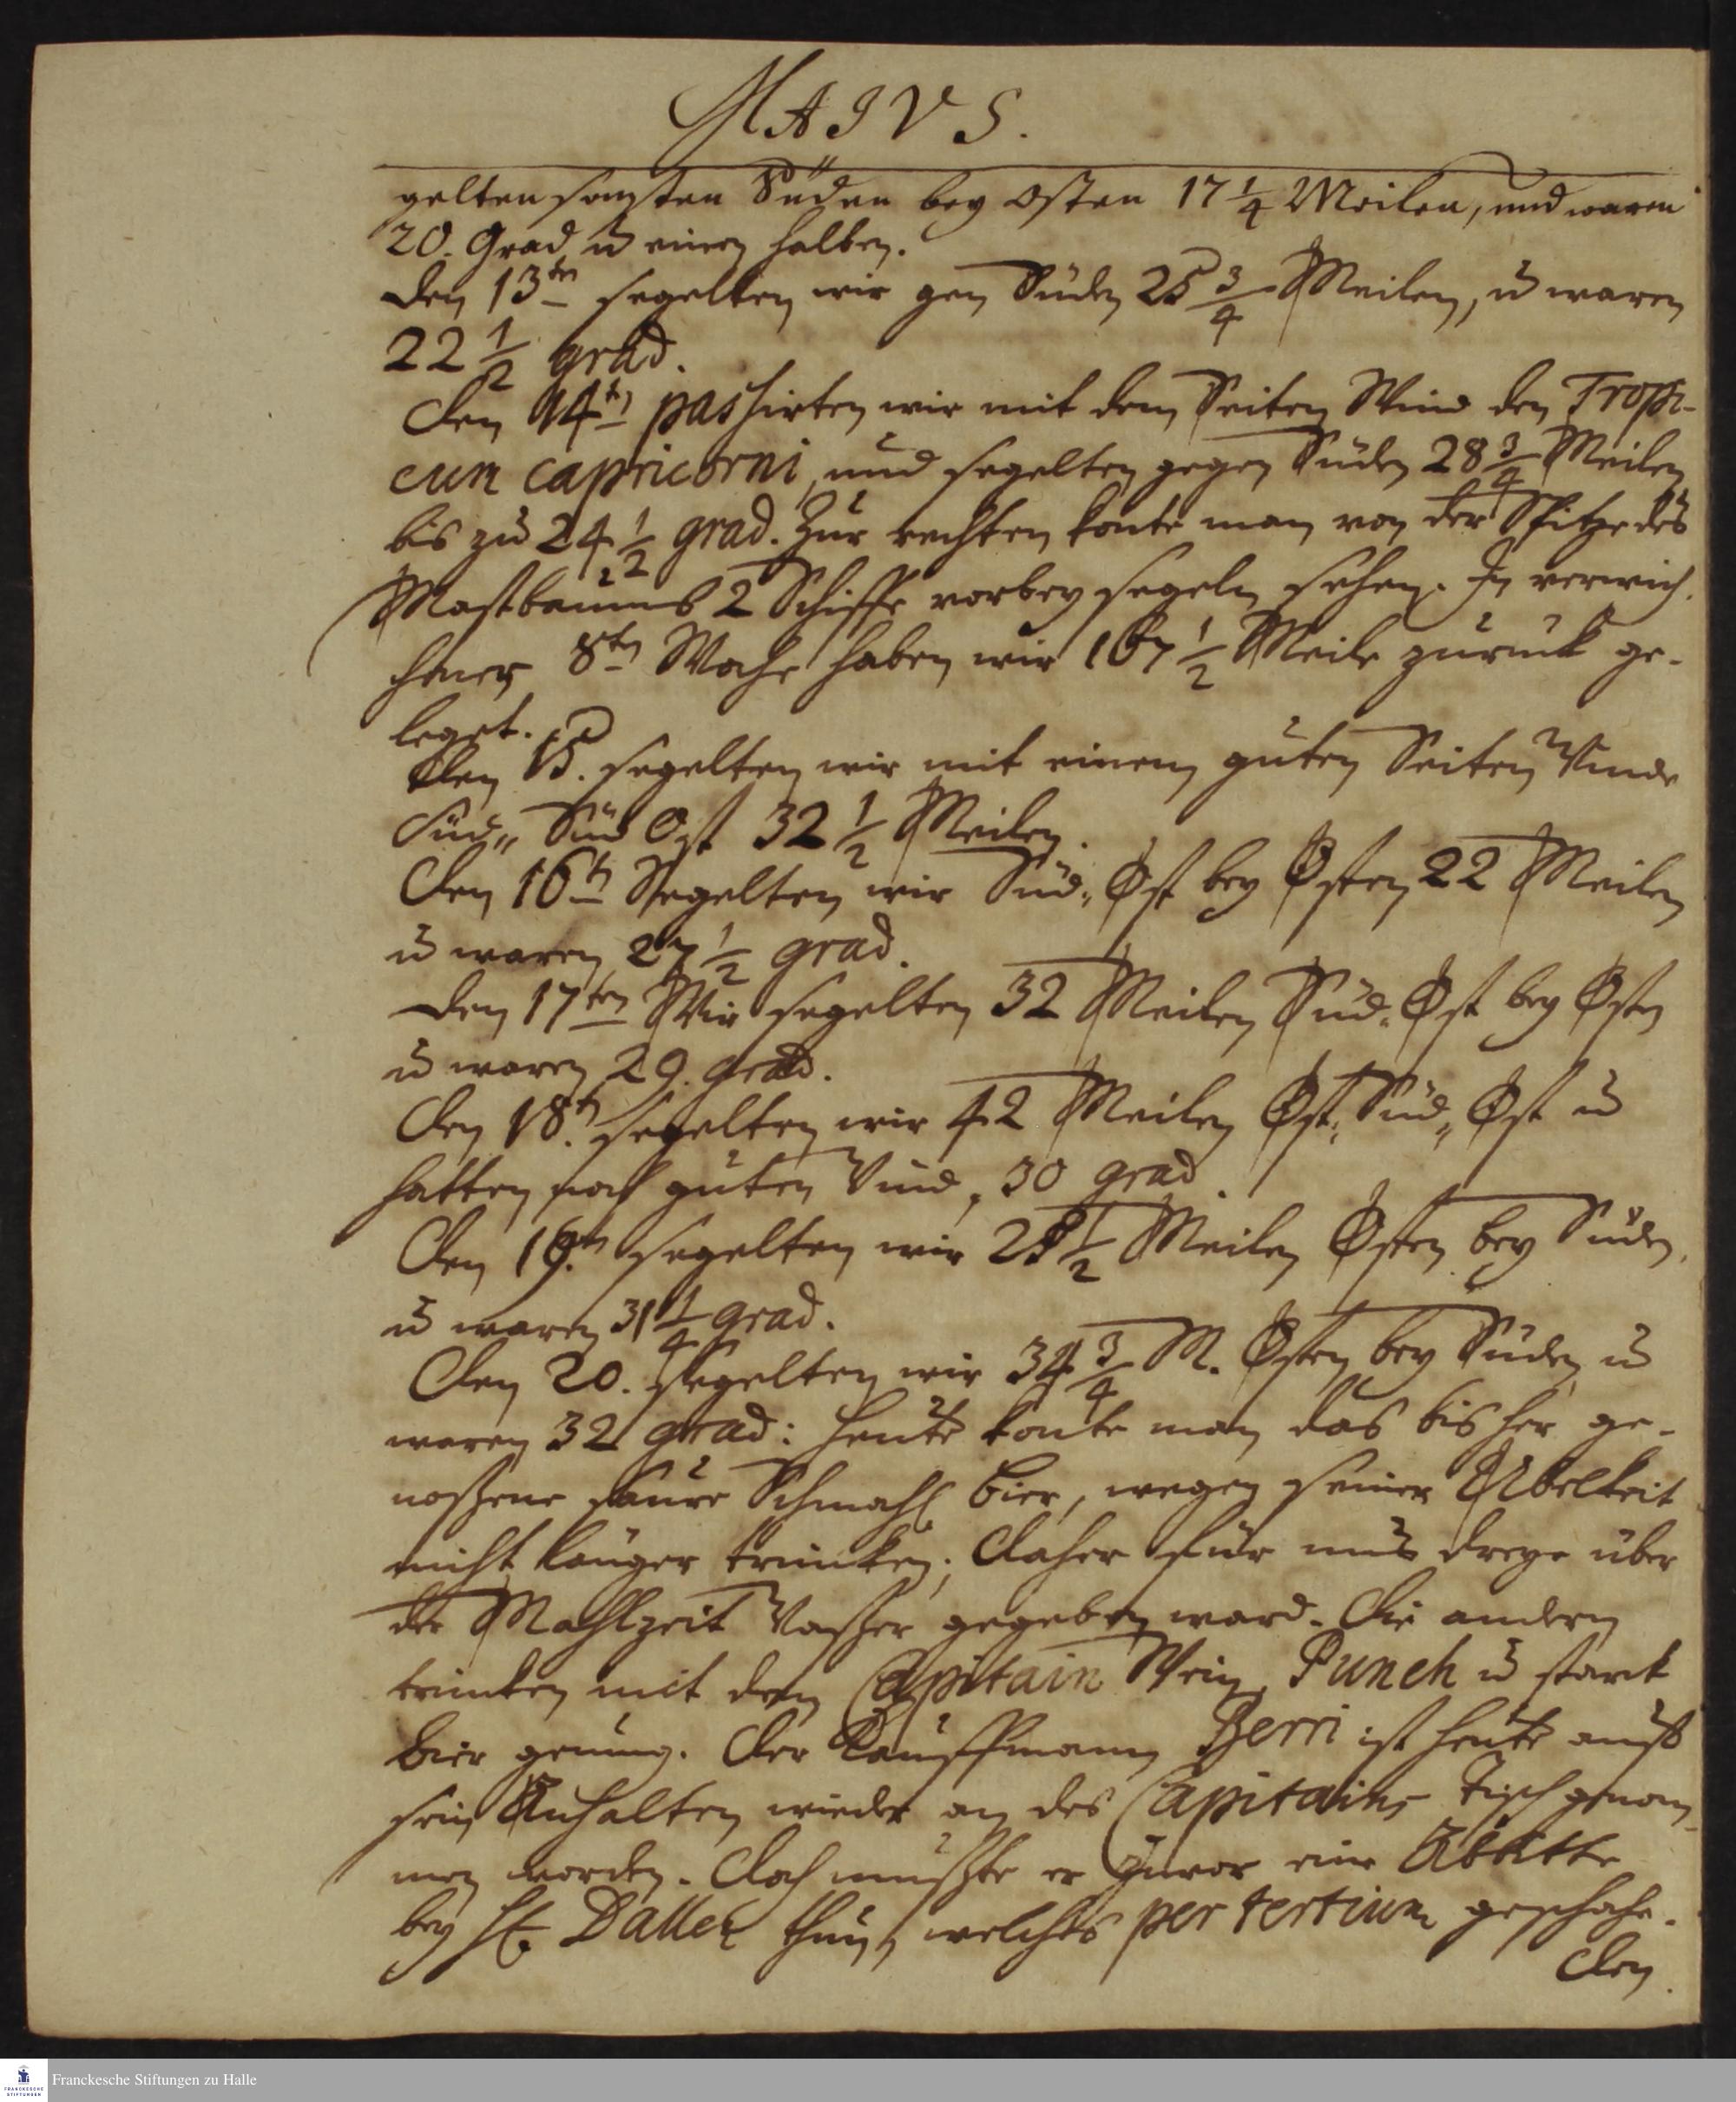 MAIVS.
gelten sonsten Süden bey Osten 17 1/4 Meilen, und waren
20. Grad u einen halben.
Den 13ten segelten wir gen Süden 25 3/4 Meilen, u waren
22 1/2 grad.
Den 14tn passirten wir mit dem Seiten Wind den Tropi-
cum capricorni, und segelten gegen Süden 28 3/4 Meilen
bis zu 24 1/2 grad. Zur rechten konte man von der Spitze des
Mastbaums 2 Schiffe vorbey segeln sehen. In verwich
chener 8tn Woche haben wir 167 1/2 Meile zurück ge-
leget.
Den 15. segelten wir mit einem guten Seiten Winde
Süd„ Süd Ost 32 1/2 Meilen.
Den 16tn Segelten wir Süd„ Ost bey Osten 22 Meilen
u waren 27 1/2 grad.
Den 17ten Wir segelten 32 Meilen Süd„ Ost bey Osten
u waren 29. grad.
Den 18tn segelten wir 42 Meilen Ost„ Süd„ Ost u
hatten noch guten Wind, 30 grad.
Den 19.tn segelten wir 28 1/2 Meilen Osten bey Süden,
u waren 31 1/4 grad.
Den 20. segelten wir 34 3/4 M. Osten bey Süden u
waren 32 grad: heute konte man das bisher ge-
noßene saure Schmahl Bier, wegen seiner Übelkeit
nicht länger trincken; Daher für uns dreye über
der Mahlzeit Waßer gegeben ward. Die andern
trincken mit dem Capitain Wein, Punch u starck
Bier genung. Der Kauffmann Berri ist heute auf
sein Anhalten wieder an des Capitains Tisch genom
men worden. Doch mußte er zuvor eine Abbitte
bey H. thun, welches per tertium geschahe.
Den
Franckesche Stiftungen zu Halle